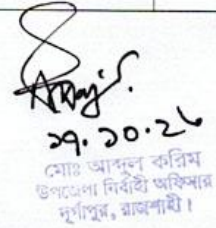 ২৭.১০.২৫
মোঃ আব্দুল করিম
উপজেলা নির্বাহী অফিসার
দূর্গাপুর, রাজশাহী।